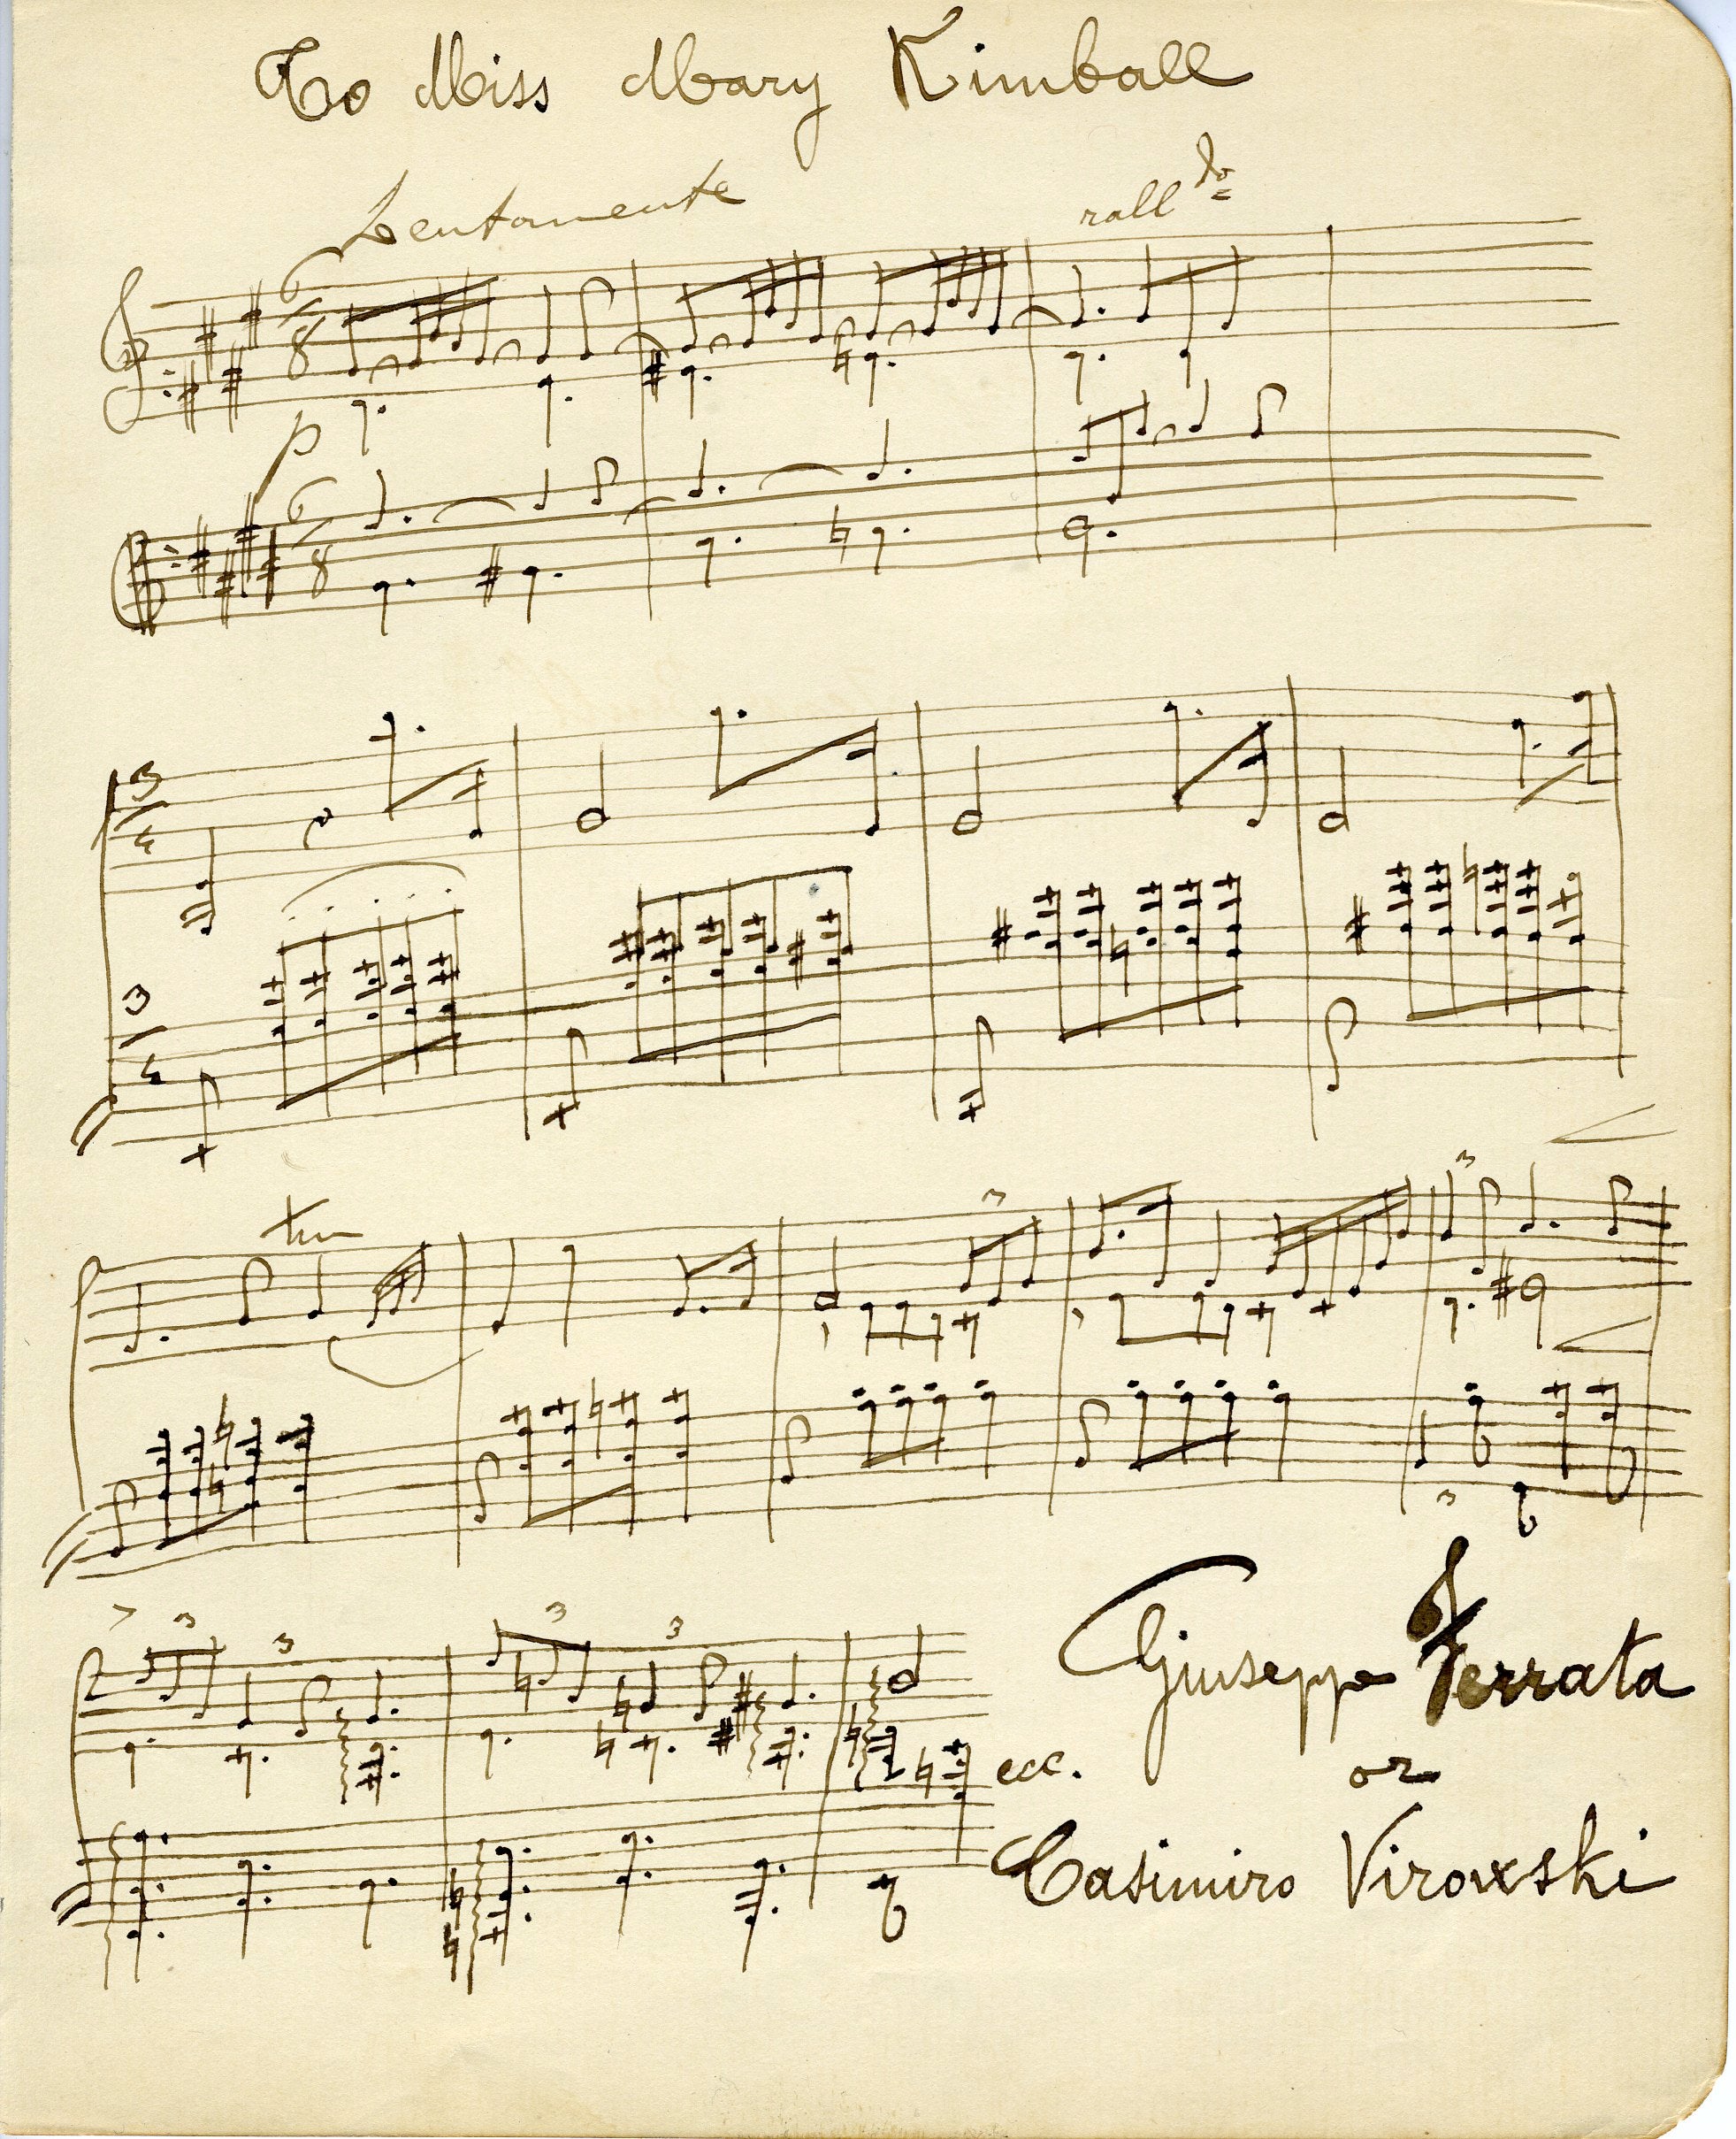 To Miss Mary Kimball
Lentamente
rall do
6
8
p
6
8
3
4
3
4
ten
3
3
3
3 3 3 3
Giuseppe Ferrata
ecc. or
Casimiro Virowski